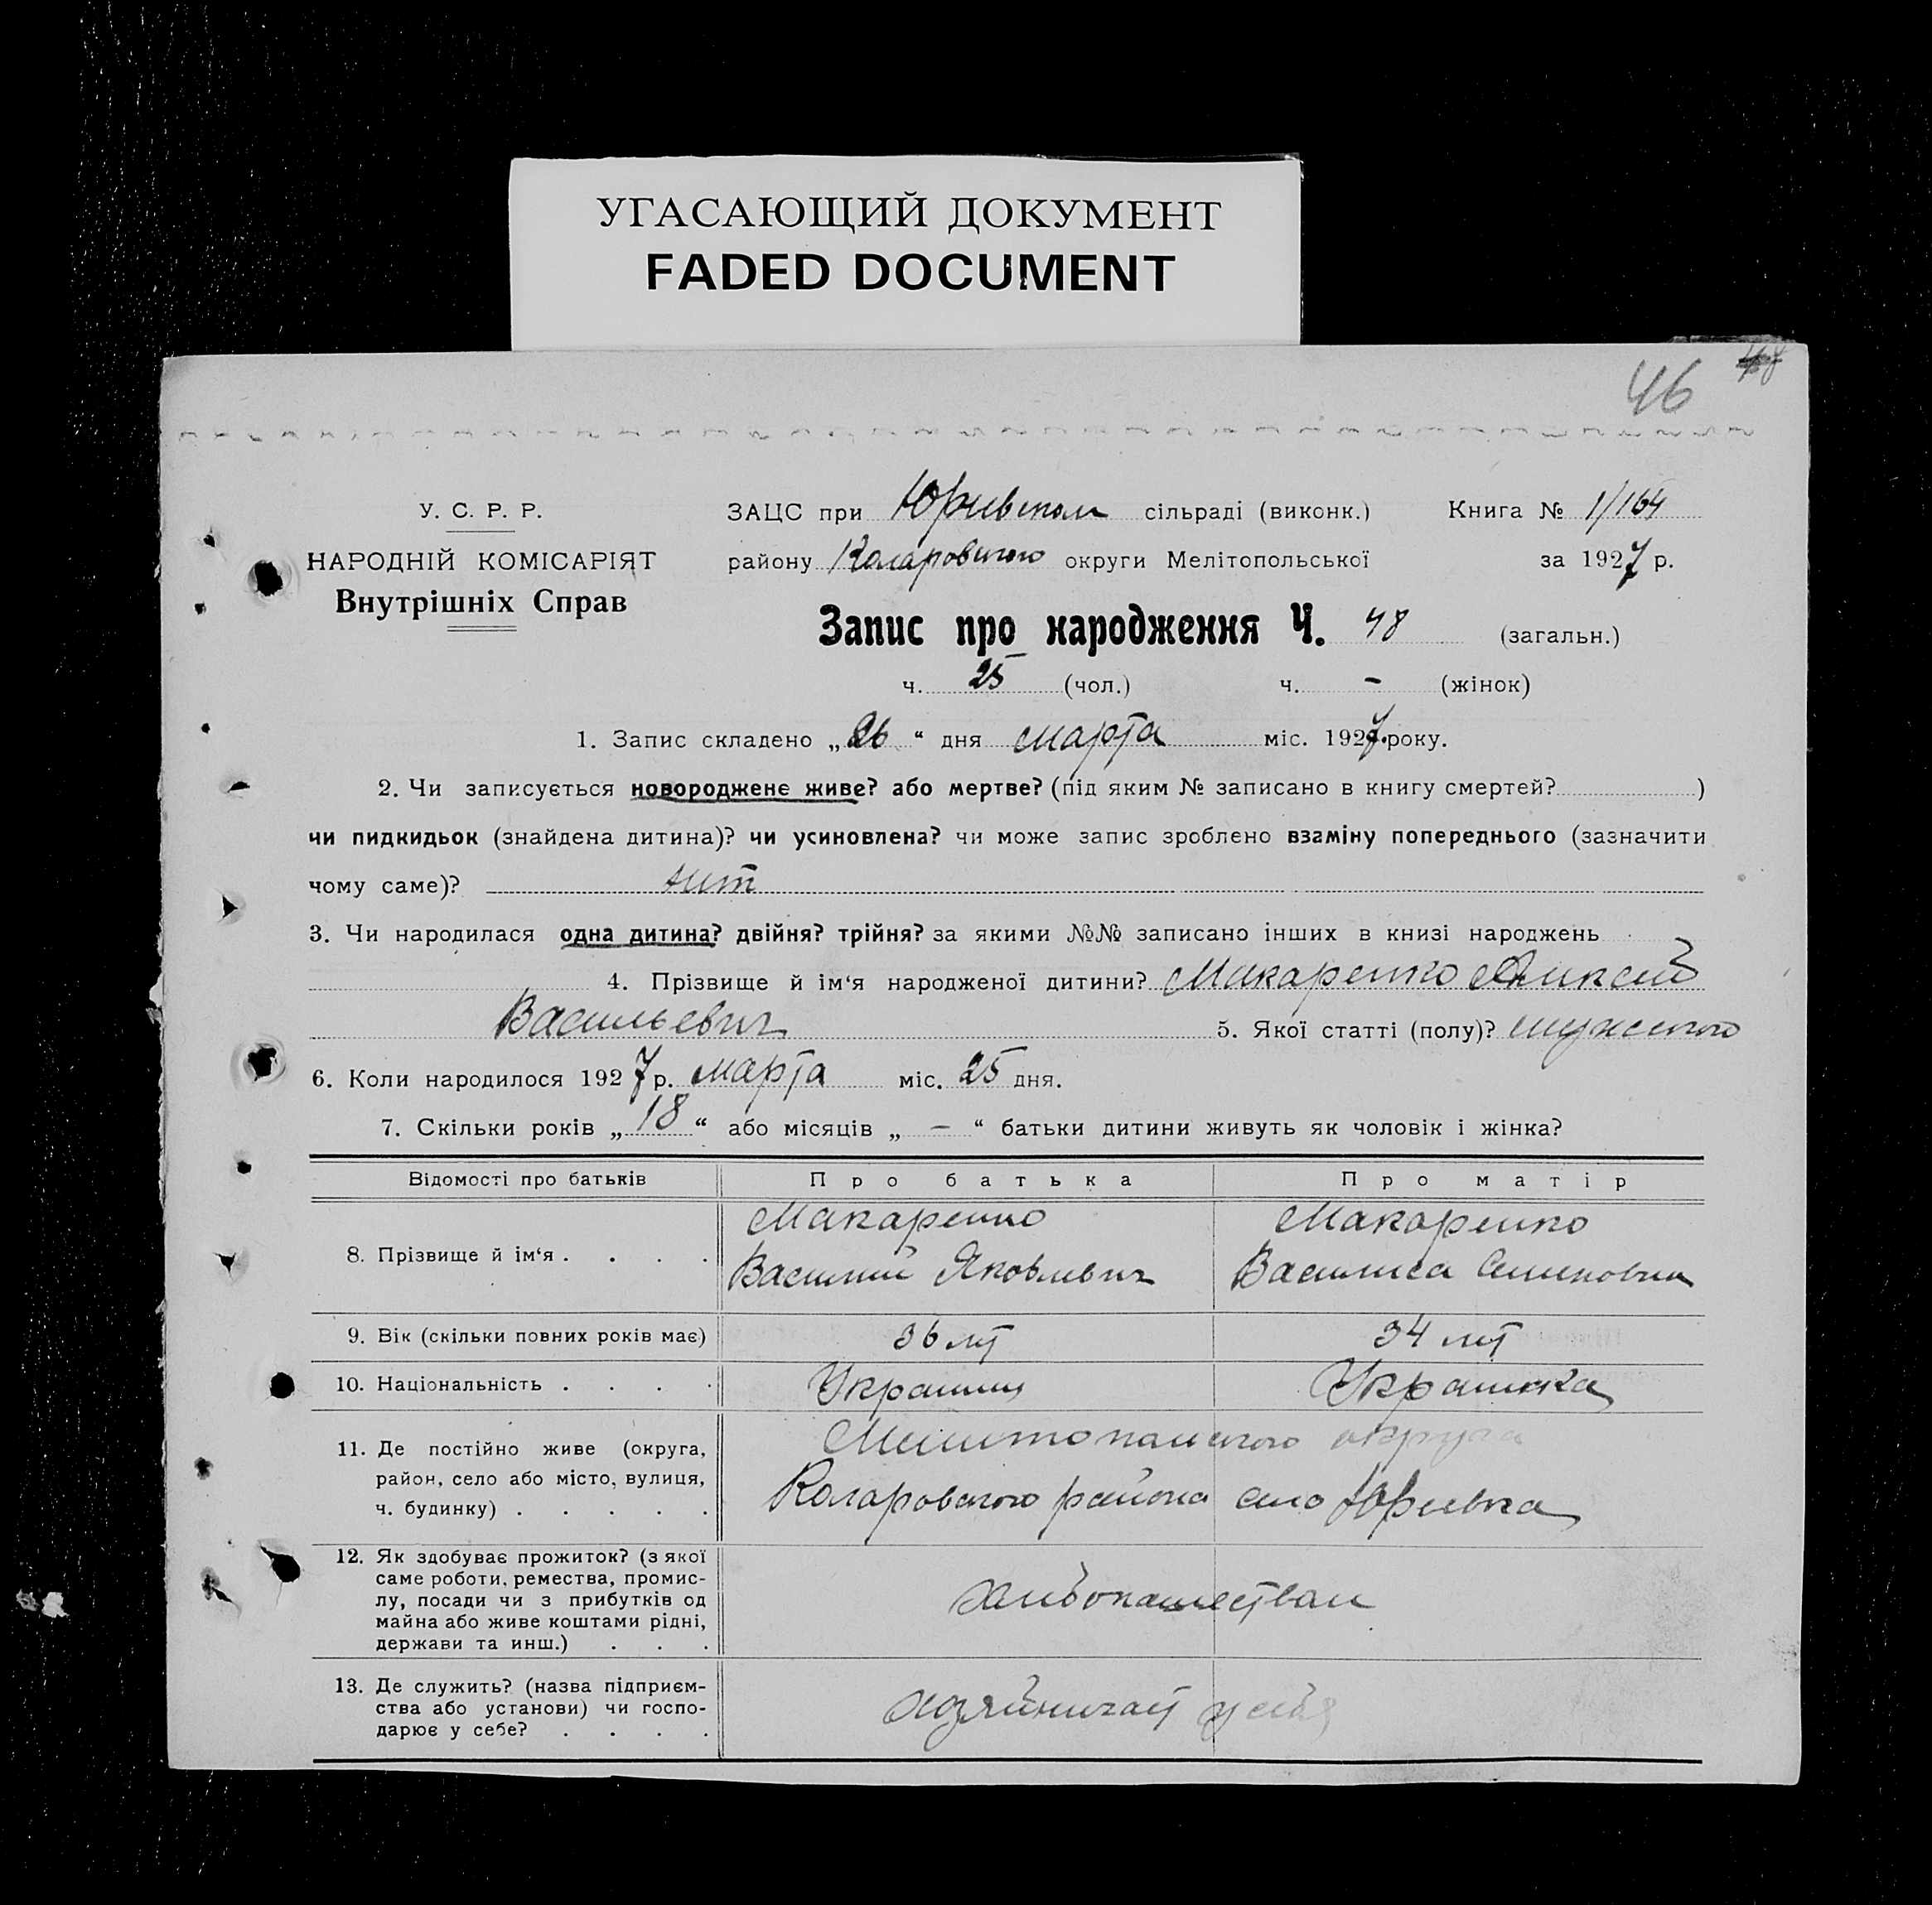 УГАСАЮЩИЙ ДОКУМЕНТ
FADED DOCUMENT
46
У. С. Р. Р.
НАРОДНІЙ КОМІСАРІЯТ
Внутрішніх Справ
ЗАЦС при Юрьевском сільраді (виконк.) Книга № 1/164
району Коларовского округи Мелітопольської за 1927 р.
Запис про народження Ч. 48 (загальн.)
ч. 25 (чол.) ч. – (жінок)
1. Запис складено „26“ дня марта міс. 1927 року.
2. Чи записується новороджене живе? або мертве? (під яким № записано в книгу смертей? )
чи пидкидьок (знайдена дитина)? чи усиновлена? чи може запис зроблено взаміну попереднього (зазначити
чому саме)? нет
3. Чи народилася одна дитина? двійня? трійня? за якими №№ записано інших в книзі народжень
4. Прізвище й ім‘я народженої дитини? Макаренко Алексей
Васильевич 5. Якої статті (полу)? мужского
6. Коли народилося 1927 р. марта міс. 25 дня.
7. Скільки років „18“ або місяців „–“ батьки дитини живуть як чоловік і жінка?
Відомості про батьків Про батька Про матір
8. Прізвище й ім‘я . . . . Макаренко Василий Яковлевич Макаренко Василиса Семеновна
9. Вік (скільки повних років має) 36 лет 34 лет
10. Національність . . . . Украинец Украинка
11. Де постійно живе (округа, Мелитопольского округа
район, село або місто, вулиця, Коларовского района село Юрьевка
ч. будинку) . . . . .
12. Як здобуває прожиток? (з якої
саме роботи, ремества, промис-
лу, посади чи з прибутків од хлебопашеством
майна або живе коштами рідні,
держави та инш.) . . .
13. Де служить? (назва підприєм-
ства або установи) чи госпо- хозяйничает у себя
дарює у себе? . . . .